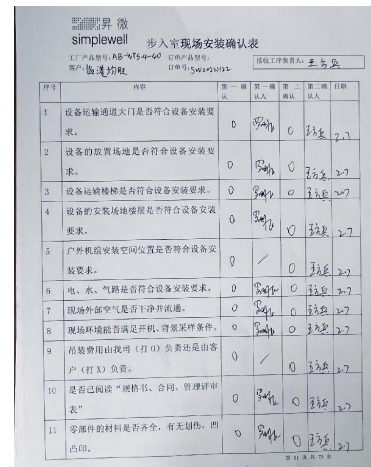 昇微
simplewell
步入室现场安装确认表
工厂产品型号: 订单产品型号:
接收工序负责人: 王方兵
客户: 订单号:
序号 内容 第一确认 第一确认人 第二确认 第二确认人 日期
1 设备运输通道大门是否符合设备安装要求。 0 0 王方兵 2.7
2 设备的放置场地是否符合设备安装要求。 0 0 王方兵 2.7
3 设备运输楼梯是否符合设备安装要求。 0 0 王方兵 2.7
4 设备的安装场地楼层是否符合设备安装要求。 0 0 王方兵 2.7
5 户外机组安装空间位置是否符合设备安装要求。 0 / 0 王方兵 2.7
6 电、水、气路是否符合设备安装要求。 0 0 王方兵 2.7
7 现场外部空气是否干净并流通。 0 0 王方兵 2.7
8 现场环境能否满足开机、背景采样条件。 0 0 王方兵 2.7
9 吊装费用由我司（打 O）负责还是由客户（打 X）负责。 0 / 0 王方兵 2.7
10 是否已阅读“规格书、合同、管理评审表” 0 0 王方兵 2.7
11 零部件的材料是否齐全，有无划伤，凹凸印。 0 0 王方兵 2.7
第 31 页 共 73 页